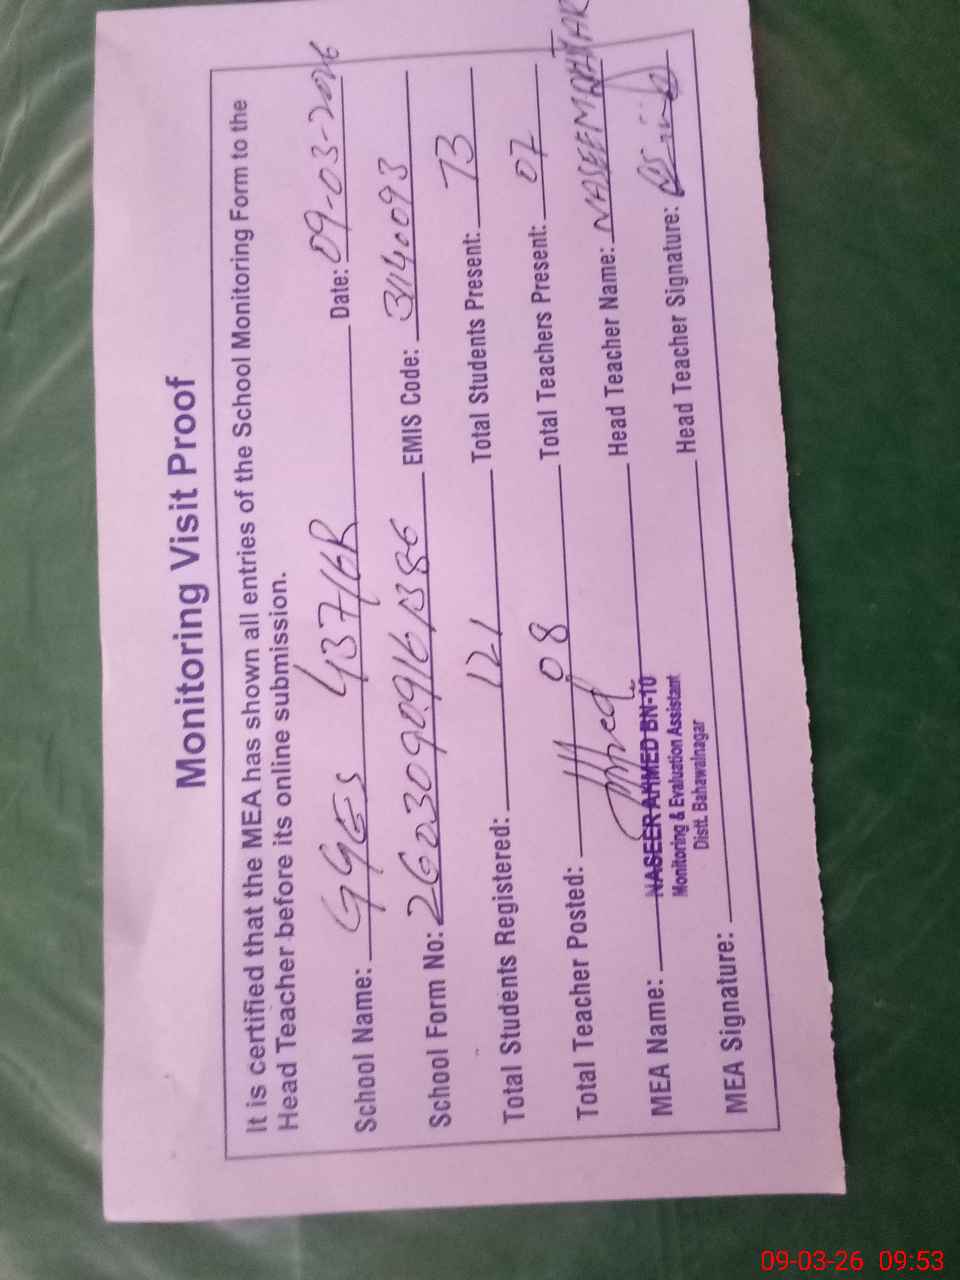 Monitoring Visit Proof
It is certified that the MEA has shown all entries of the School Monitoring Form to the
Head Teacher before its online submission.
School Name: GGES 437/6R Date: 09-03-2026
School Form No: EMIS Code: 31140093
Total Students Registered: 121 Total Students Present: 73
Total Teacher Posted: 08 Total Teachers Present: 07
MEA Name: NASEER AHMED BN-10 Head Teacher Name: NASEEM AKHTAR
Monitoring & Evaluation Assistant
Distt. Bahawalnagar
MEA Signature: Head Teacher Signature:
09-03-26 09:53